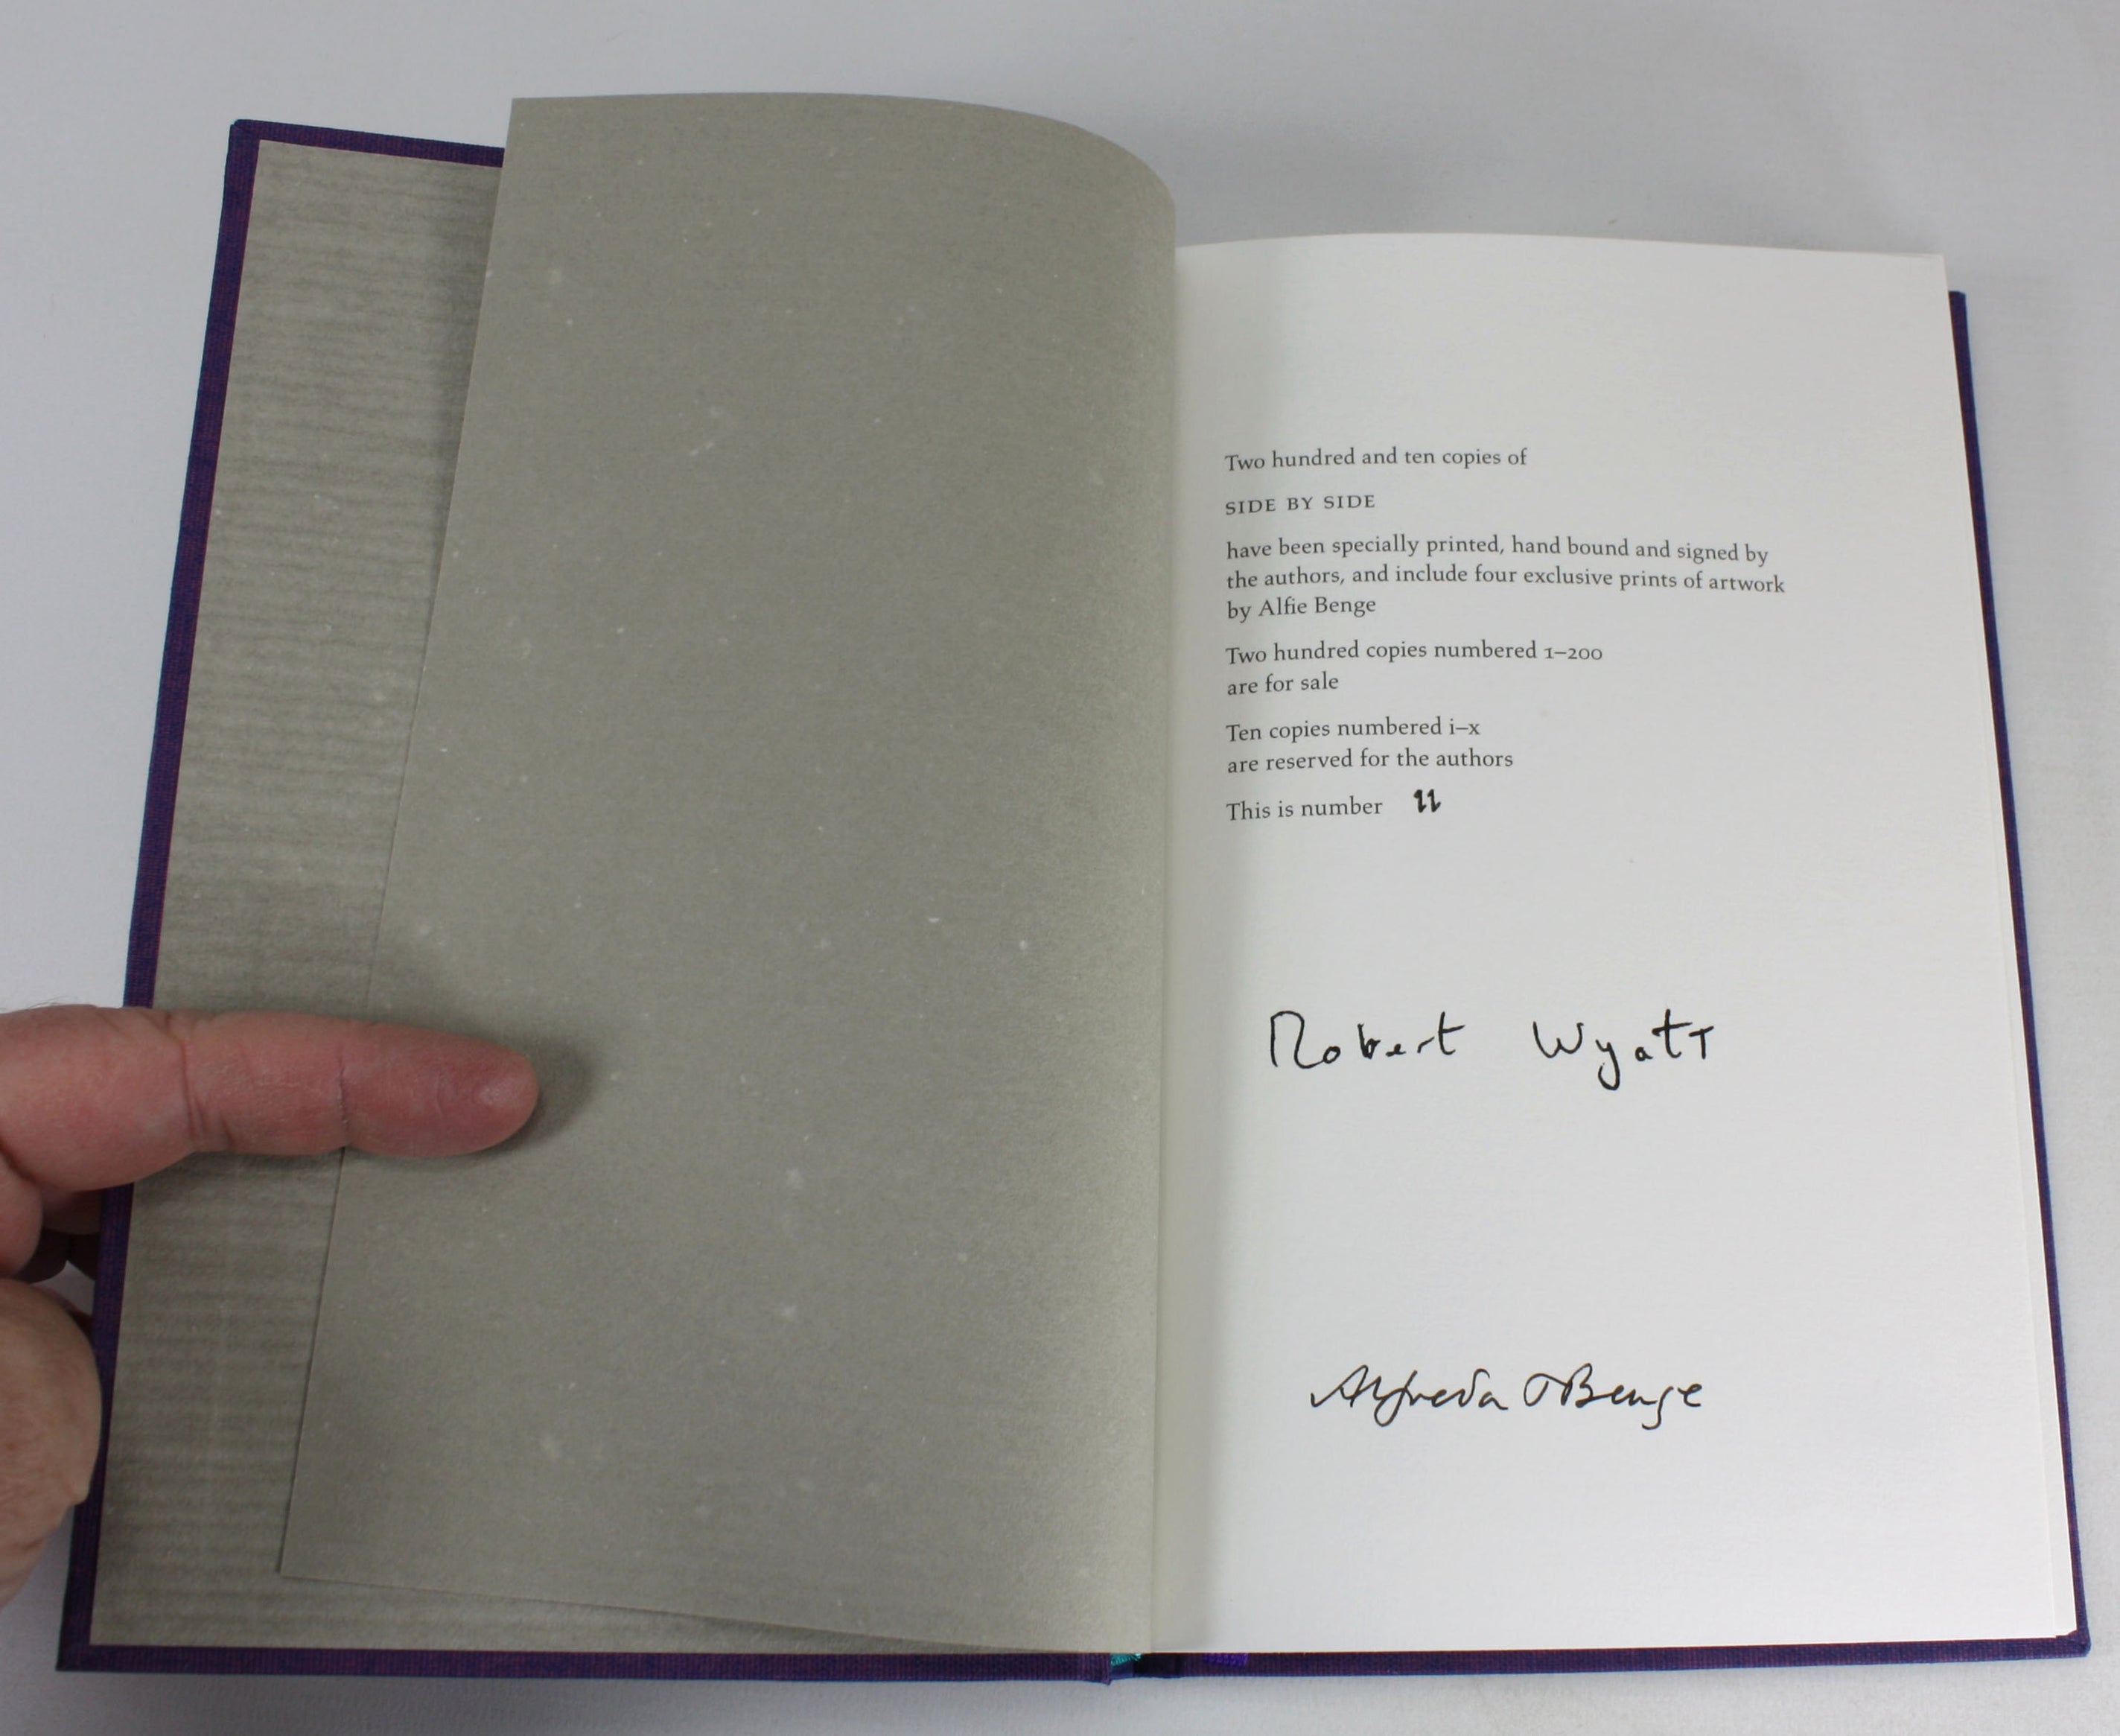 Two hundred and ten copies of
SIDE BY SIDE
have been specially printed, hand bound and signed by
the authors, and include four exclusive prints of artwork
by Alfie Benge
Two hundred copies numbered 1–200
are for sale
Ten copies numbered i–x
are reserved for the authors
This is number 11
Robert Wyatt
Alfreda Benge